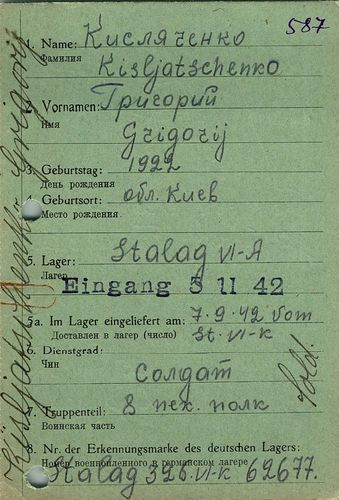 587
1. Name: Кисляченко
Фамилия
Kisljatschenko
2. Vornamen: Григорий
Имя
Grigorij
3. Geburtstag: 1922
День рождения
4. Geburtsort: обл. Киев
Место рождения
5. Lager: Stalag VI-A
Лагерь
Eingang 5 11 42
5a. Im Lager eingeliefert am: 7.9.42 vom
Доставлен в лагерь (число) St. VI-K
6. Dienstgrad:
Чин
Солдат
7. Truppenteil: 8 пех. полк
Воинская часть
8. Nr. der Erkennungsmarke des deutschen Lagers:
Номер военнопленного в германском лагере
Stalag 326 VI-K 62677.
Kisljatschenko Grigorij
Sold.